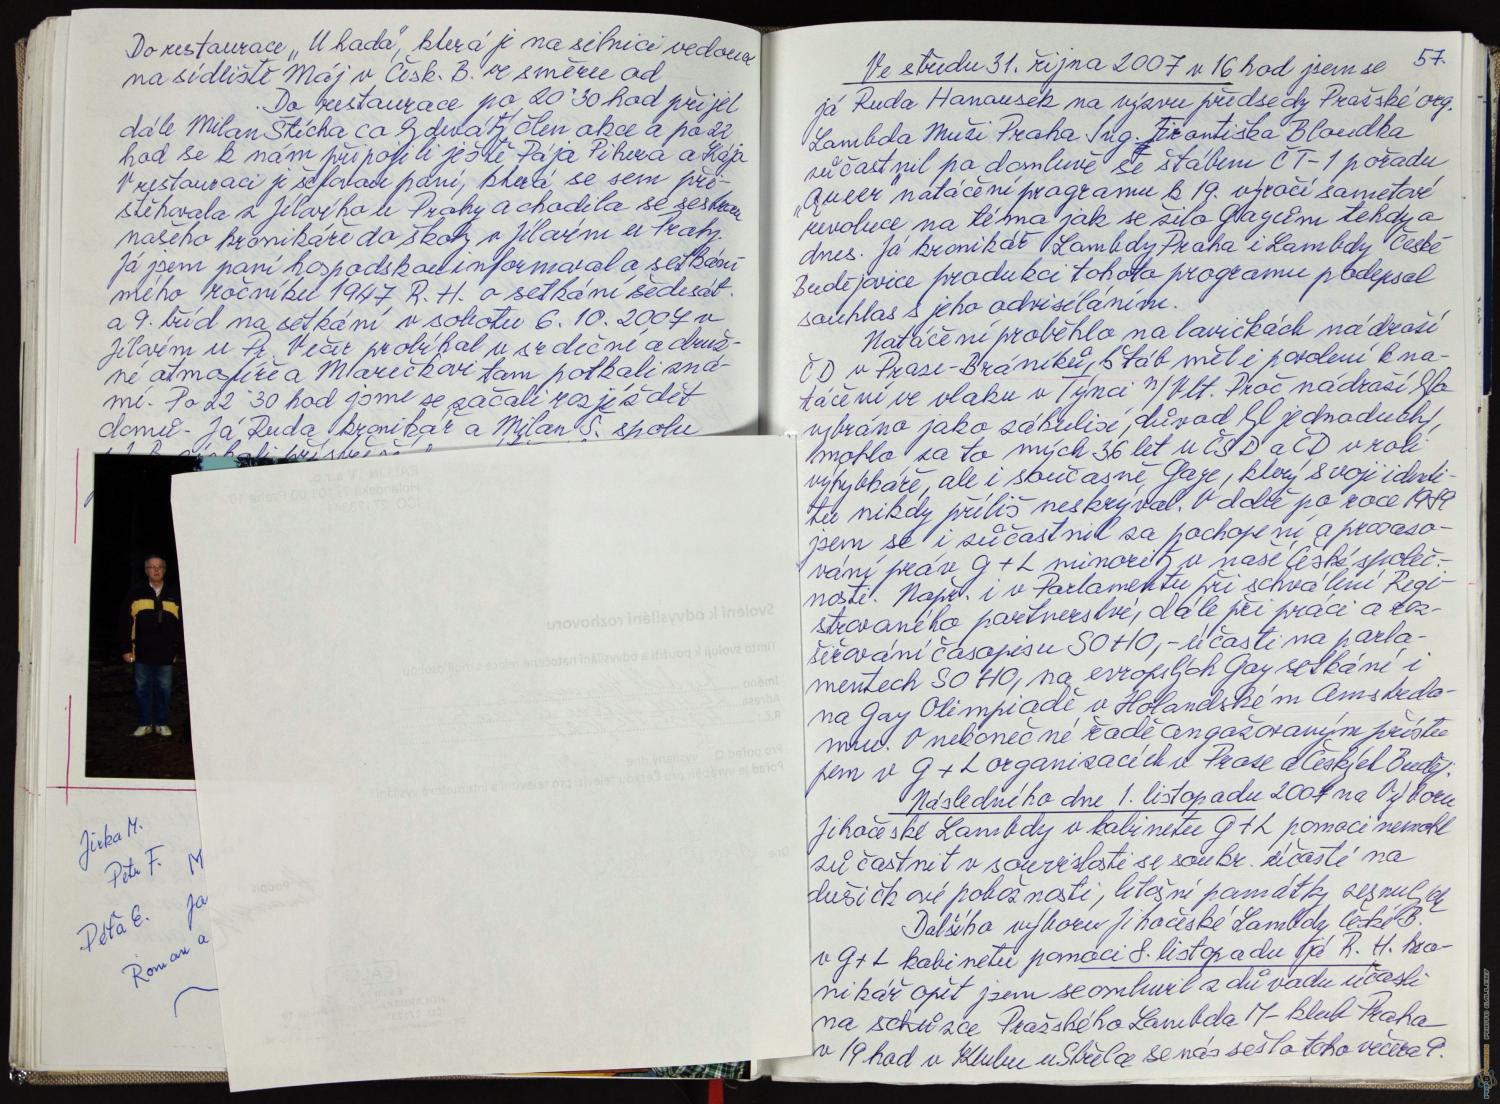 Do restaurace „U hada", která je na silnici vedoucí
na sídliště Máj v Česk. B. ve směru od
Do restaurace po 20°30 hod přijel
dále Milan Štícha co devátý člen akce a po 22
hod se k nám připojili ještě Pája Pihera a Kája
V restauraci je šéfovou paní, která se sem při-
stěhovala z Jílového u Prahy a chodila se sestrou
našeho kronikáře do školy v Jílovém u Prahy.
Já jsem paní hospodskou informoval o setkání
mého ročníku 1947 R. H. o setkání šedesát.
a 9. tříd na setkání v sobotu 6. 10. 2007 v
Jílovém u Pr. Večer probíhal v srdečné a druž-
né atmosféře a Marečkovi tam potkali zná-
mé. Po 22°30 hod jsme se začali rozjíždět
domů. Já Ruda kronikář a Milan Š. spolu
Jirka M.
Petr F. M
Péťa E. Ja
Roman a
Svolení k odvysílání rozhovoru
Tímto svoluji k použití a odvysílání natočené
Jméno
Adresa
Pro pořad Q vysílaný dne
Pořad je vyráběn pro Českou televizi pro televizní a internetové vysílání
Dne
Podpis
57.
Ve středu 31. října 2007 v 16 hod jsem se
já Ruda Hanousek na výzvu předsedy Pražské org.
Lambda Muži Praha Ing. Františka Bloudka
zúčastnil po domluvě se štábem ČT-1 pořadu
„Queer natáčení programu k 19. výročí sametové
revoluce na téma jak se žilo Gayům tehdy a
dnes. Já kronikář Lambdy Praha i Lambdy České
Budějovice produkci tohoto programu podepsal
souhlas s jeho odvysíláním.
Natáčení proběhlo na lavičkách nádraží
ČD v Praze-Braníku, štáb měl i povolení k na-
táčení ve vlaku v Týnci n/Vlt. Proč nádraží bylo
vybráno jako zákulisí, důvod byl jednoduchý,
mohlo za to mých 36 let u ČSD a ČD v roli
výhybkáře, ale i současně Gaye, který svoji identi-
tu nikdy příliš neskrýval. V době po roce 1989
jsem se i zúčastnil za pochopení a prosazo-
vání práv G+L minority v naší České společ-
nosti. Např. i v Parlamentu při schválení Regi-
strovaného partnerství, dále při práci a roz-
šiřování časopisu SOHO, - účasti na parla-
mentech SOHO, na evropských Gay setkání i
na Gay Olimpiadě v Holandském Amstroda-
mu. V nekonečné řadě angažovaným přístu
pem v G+L organizacích v Praze a Českých Buděj.
Následného dne 1. listopadu 2007 na Výboru
Jihočeské Lambdy v kabinetu G+L pomoci nemohl
zúčastnit v souvislosti se soukr. účastí na
dušičkové pobožnosti, letošní památky zesnulých
Dalšího výboru Jihočeské Lambdy České B.
v G+L kabinetu pomoci 8. listopadu (já R. H. kro-
nikář opět jsem se omluvil z důvodu účasti
na schůzce Pražského Lambda M-klub Praha
v 19 hod v Klubu u Střelce se nás sešlo toho večera 9.